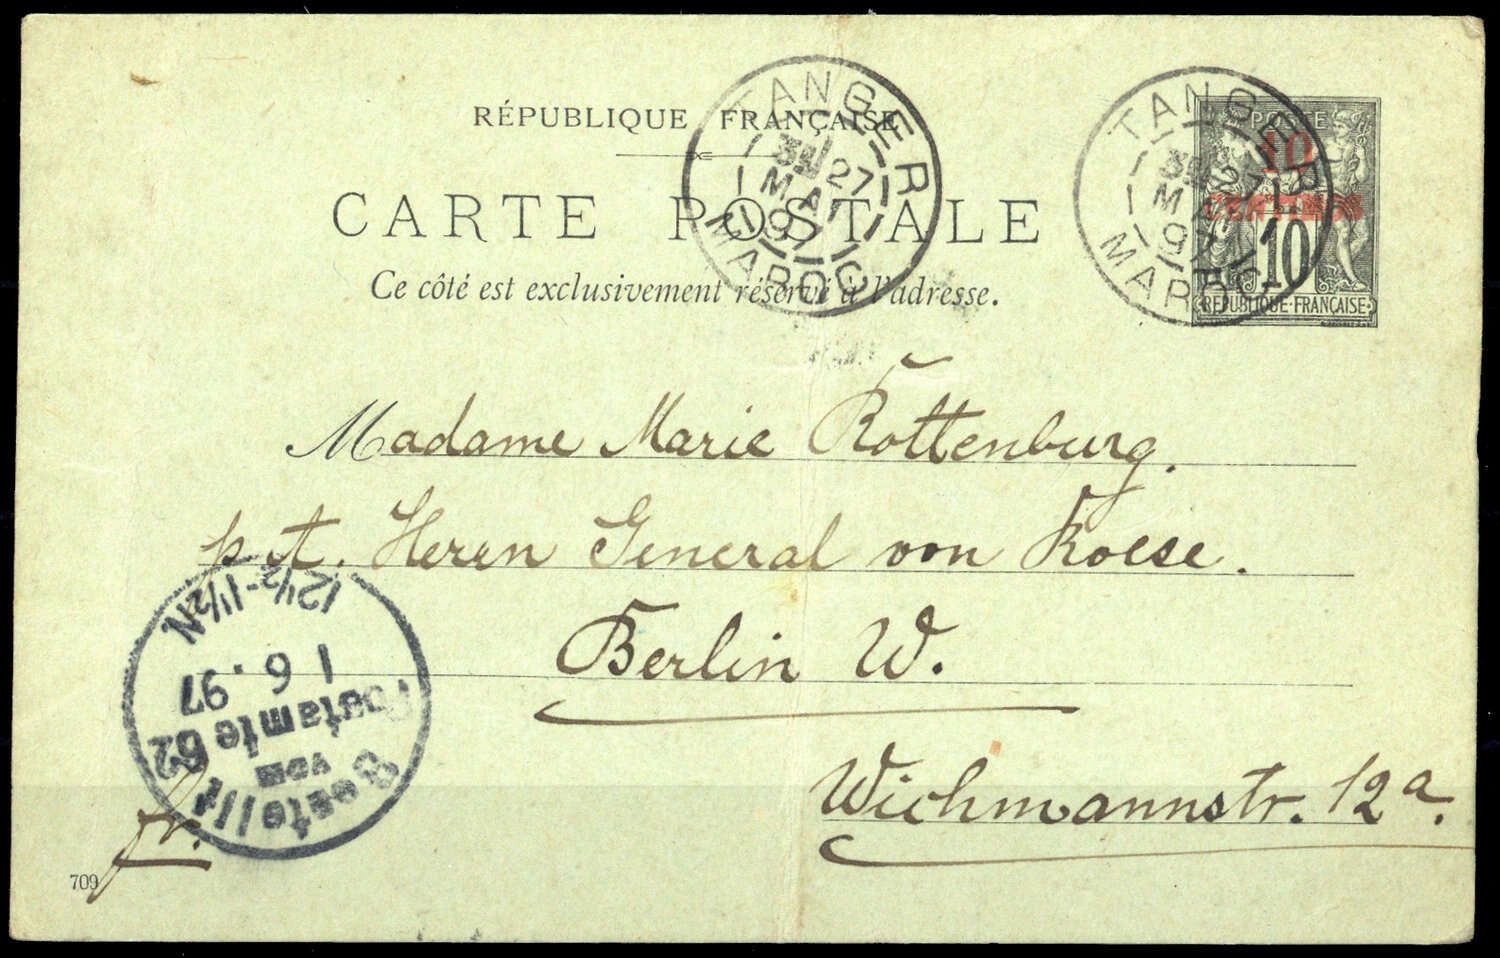 RÉPUBLIQUE FRANÇAISE
CARTE POSTALE
Ce côté est exclusivement réservé à l'adresse.
TANGER
27
MAI
97
MAROC
TANGER
27
MAI
97
MAROC
POSTE
10
CENTIMOS
10
RÉPUBLIQUE FRANÇAISE
Madame Marie Rottenburg.
p. A. Herrn General von Roese.
Berlin W.
Wichmannstr. 12a.
Bestellt
vom
Postamte 62
1 6. 97
12½-1½N.
fr.
709